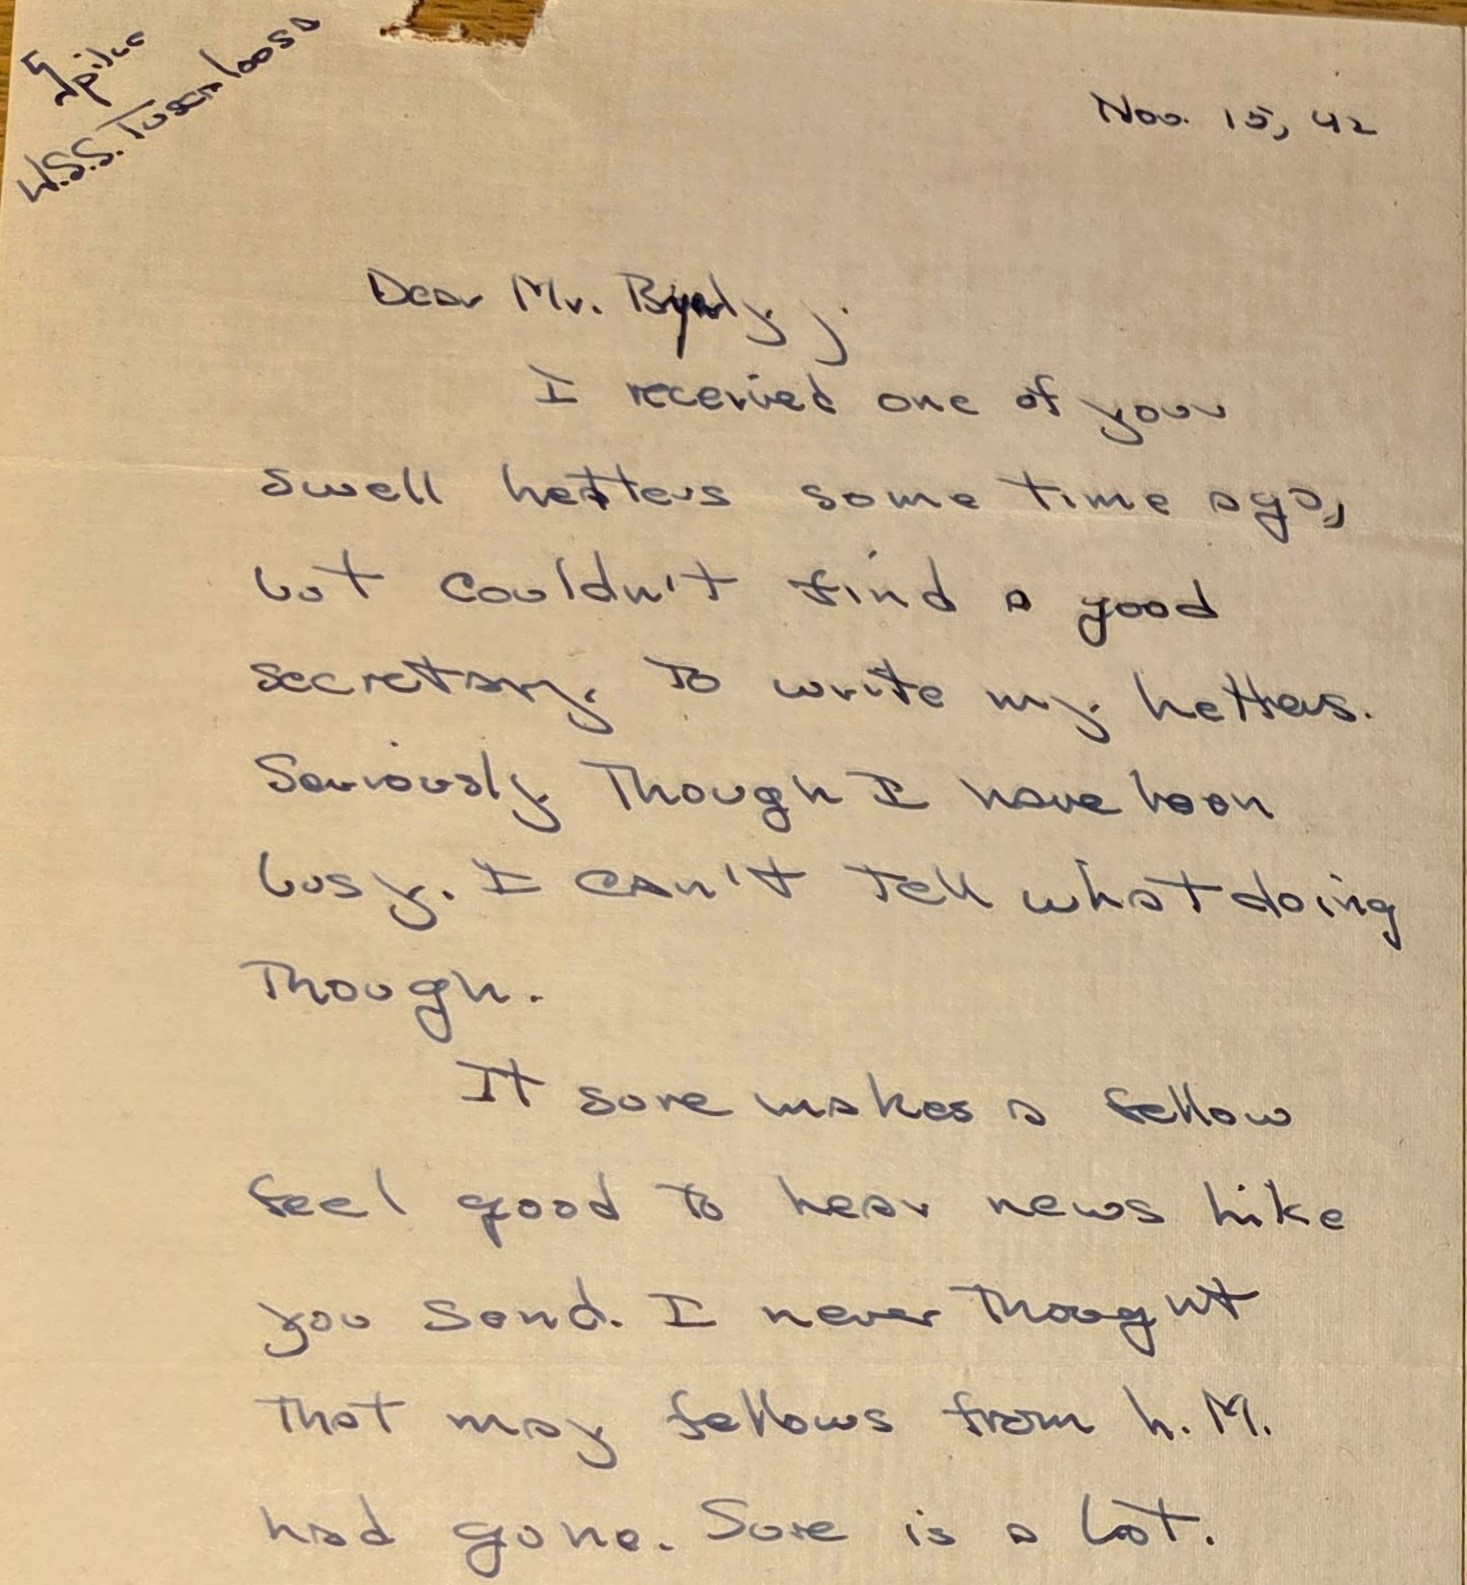 U.S.S. Tuscaloosa
Nov. 15, 42
Dear Mr. Byerly,
I received one of your
swell Letters some time ago,
but couldn't find a good
secretary to write my Letters.
Seriously Though I have been
busy. I can't Tell what doing
Though.
It sure makes a fellow
feel good to hear news Like
you send. I never Thought
That may fellows from L.M.
had gone. Sure is a Lot.